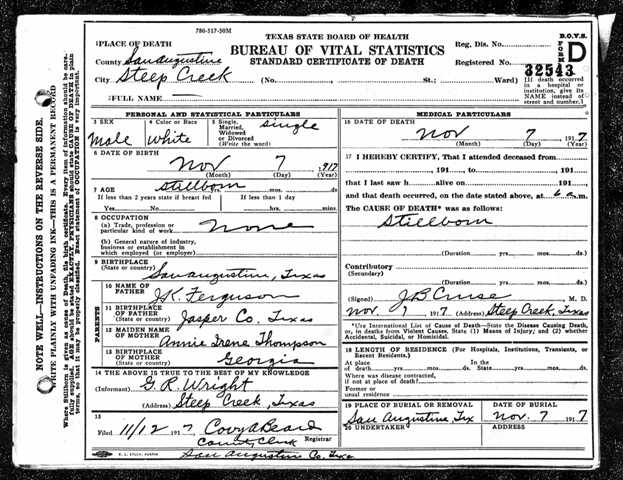 786-517-50M
TEXAS STATE BOARD OF HEALTH
BUREAU OF VITAL STATISTICS
STANDARD CERTIFICATE OF DEATH
B.O.V.S.
FORM D
Reg. Dis. No.
Registered No.
32543
1 PLACE OF DEATH
County San Augustine
City Steep Creek (No. St.; Ward)
(If death occurred in a hospital or institution, give its NAME instead of street and number.)
2 FULL NAME
PERSONAL AND STATISTICAL PARTICULARS
3 SEX Male
4 Color or Race White
5 Single, Married, Widowed or Divorced (Write the word) single
6 DATE OF BIRTH
Nov 7 1917
(Month) (Day) (Year)
7 AGE stillborn mos. ds.
If less than 2 years state if breast fed
If less than 1 day
Yes No hrs. mins.
8 OCCUPATION
(a) Trade, profession or particular kind of work none
(b) General nature of industry, business or establishment in which employed (or employer)
9 BIRTHPLACE
(State or country) San Augustine, Texas
PARENTS
10 NAME OF FATHER J.K. Ferguson
11 BIRTHPLACE OF FATHER (State or country) Jasper Co. Texas
12 MAIDEN NAME OF MOTHER Annie Irene Thompson
13 BIRTHPLACE OF MOTHER (State or country) Georgia
14 THE ABOVE IS TRUE TO THE BEST OF MY KNOWLEDGE
(Informant) G. R. Wright
(Address) Steep Creek, Texas
15
Filed 11/12 1917 Covy A Beard
County Clerk Registrar
San Augustine Co. Texas
MEDICAL PARTICULARS
16 DATE OF DEATH
Nov 7 1917
(Month) (Day) (Year)
17 I HEREBY CERTIFY, That I attended deceased from
, 191 , to , 191 ,
that I last saw h alive on 191 ,
and that death occurred, on the date stated above, at 6 a.m.
The CAUSE OF DEATH* was as follows:
Stillborn
(Duration yrs. mos. ds.)
Contributory
(Secondary)
(Duration yrs. mos. ds.)
(Signed) J.B. Cruse, M. D.
Nov. 7 1917 (Address) Steep Creek, Texas
*Use International List of Cause of Death—State the Disease Causing Death, or, in deaths from Violent Causes, State (1) Means of Injury; and (2) whether Accidental, Suicidal, or Homicidal.
18 LENGTH OF RESIDENCE (For Hospitals, Institutions, Transients, or Recent Residents.)
At place In the
of death yrs. mos. ds. State yrs. mos. ds.
Where was disease contracted,
if not at place of death?
Former or
usual residence
19 PLACE OF BURIAL OR REMOVAL
San Augustine Tex
DATE OF BURIAL
Nov. 7 1917
20 UNDERTAKER
ADDRESS
NOTE WELL—INSTRUCTIONS ON THE REVERSE SIDE.
WRITE PLAINLY WITH UNFADING INK—THIS IS A PERMANENT RECORD